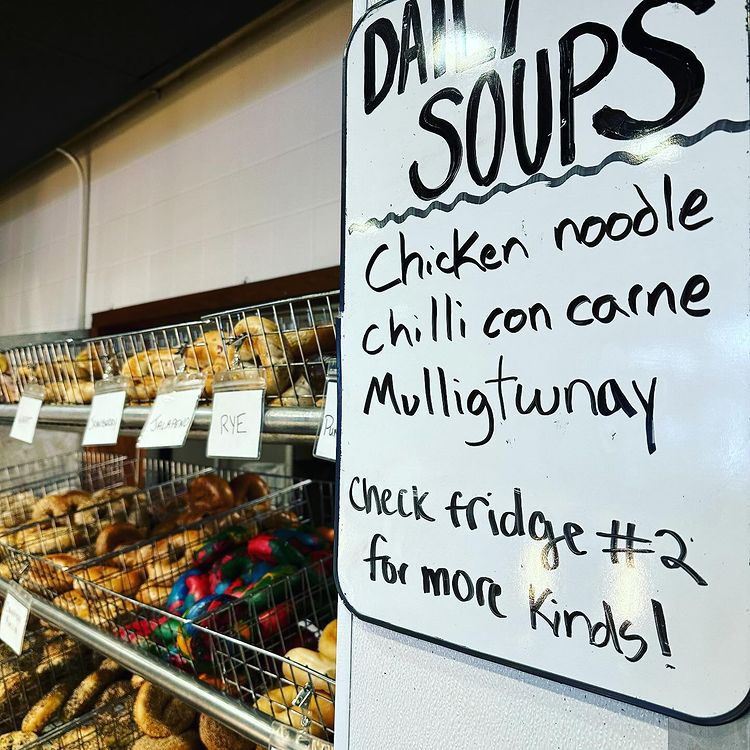 DAILY
SOUPS
Chicken noodle
chilli con carne
Mulligtwnay
Check fridge #2
for more kinds!
JALAPENO
RYE